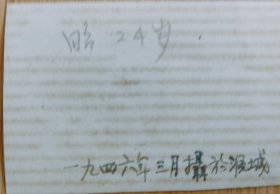 昭 24岁.
一九四六年三月攝於淮城